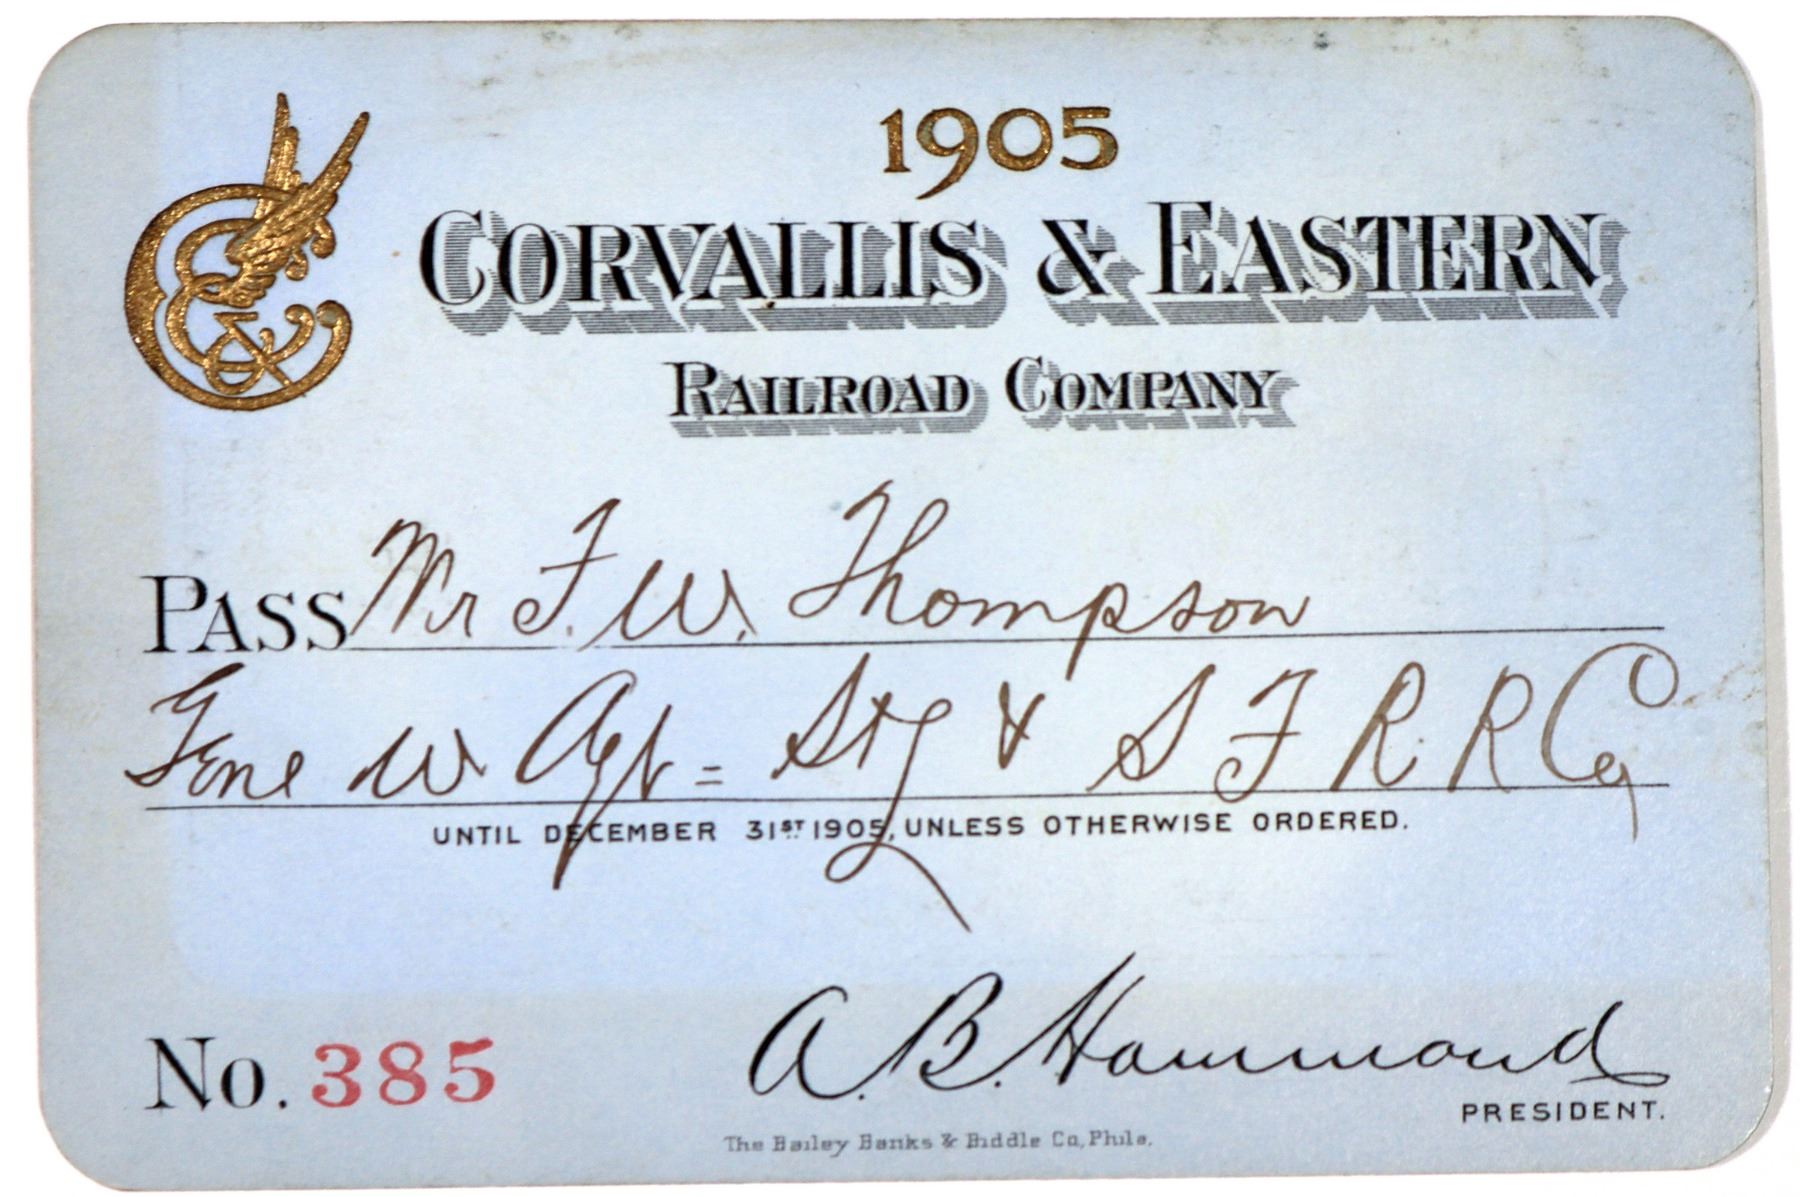 1905
CORVALLIS & EASTERN
RAILROAD COMPANY
PASS Mr F. W. Thompson
Genl W Agt = & S F R R Co
UNTIL DECEMBER 31ST 1905, UNLESS OTHERWISE ORDERED.
No. 385
A. B. Hammond
PRESIDENT.
The Bailey Banks & Biddle Co, Phila.